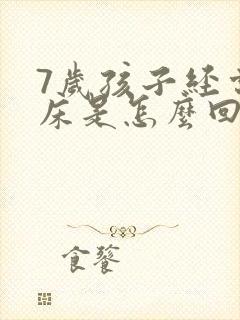 7歲孩子經常
床是怎麼回
食饕